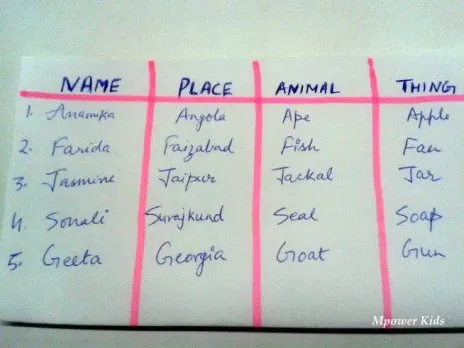 NAME PLACE ANIMAL THING
1. Anamika Angola Ape Apple
2. Farida Faizabad Fish Fan
3. Jasmine Jaipur Jackal Jar
4. Sonali Surajkund Seal Soap
5. Geeta Georgia Goat Gun
Mpower Kids